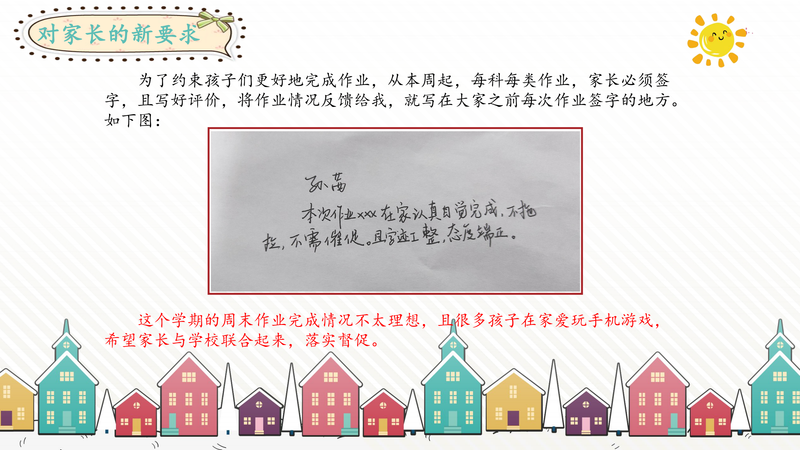 对家长的新要求
为了约束孩子们更好地完成作业，从本周起，每科每类作业，家长必须签
字，且写好评价，将作业情况反馈给我，就写在大家之前每次作业签字的地方。
如下图：
孙茜
本次作业xxx在家认真自觉完成，不拖
拉，不需催促。且字迹工整，态度端正。
这个学期的周末作业完成情况不太理想，且很多孩子在家爱玩手机游戏，
希望家长与学校联合起来，落实督促。